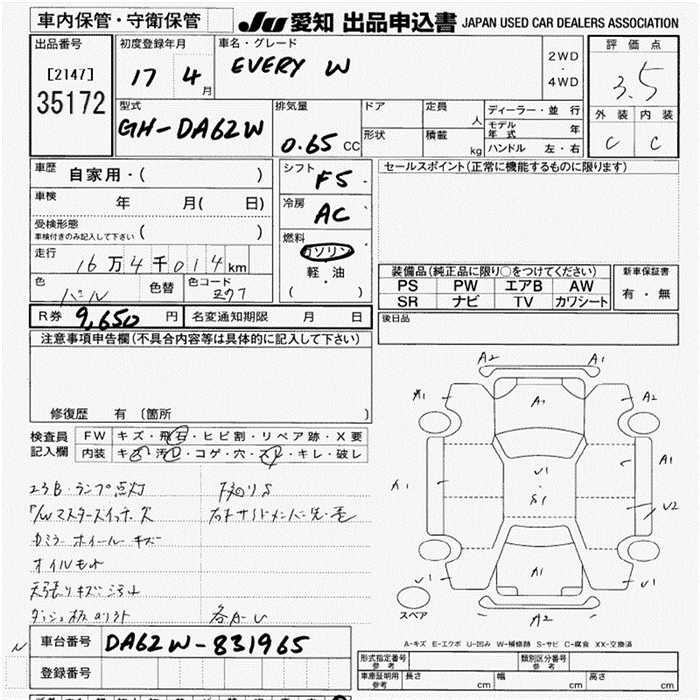 車内保管・守衛保管
JU 愛知 出品申込書 JAPAN USED CAR DEALERS ASSOCIATION
出品番号
[2147]
35172
初度登録年月
17 4 月
車名・グレード
EVERY W
2WD
・
4WD
評価点
3.5
外装 内装
C C
型式
GH-DA62W
排気量
0.65 CC
ドア
定員
人
形状
積載
kg
ディーラー・並行
モデル年式 年
ハンドル 左・右
車歴
自家用・( )
車検 年 月( 日)
受検形態
車検付きのみ記入して下さい ( )
走行
16万4千014km
色
パール
色替
色コード
Z77
シフト
F5
冷房
AC
燃料
ガソリン
軽・油
( )
セールスポイント(正常に機能するものに限ります)
装備品(純正品に限り○をつけてください)
PS PW エアB AW
SR ナビ TV カワシート
新車保証書
有・無
後日品
R券 9,650 円 名変通知期限 月 日
注意事項申告欄(不具合内容等は具体的に記入して下さい)
修復歴 有 〔箇所 〕
検査員記入欄
FW キズ・飛石・ヒビ割・リペア跡・X要
内装 キズ・汚レ・コゲ・穴・スレ・キレ・破レ
エアB・ランプ点灯
P/Wマスタースイッチ欠
Dミラー ホイール キズ
オイルモレ
天張りキズ
下廻りS
各A・U
A2 A1
A1 A1 A2
A1 U1 A1
S1 U2
U1 A1 U1
A2
スペア
A-キズ E-エクボ U-凹み W-補修跡 S-サビ C-腐食 XX-交換済
車台番号 DA62W-831965
登録番号
形式指定番号 参考
類別区分番号 参考
車庫証明用 参考 長さ cm 幅 cm 高さ cm